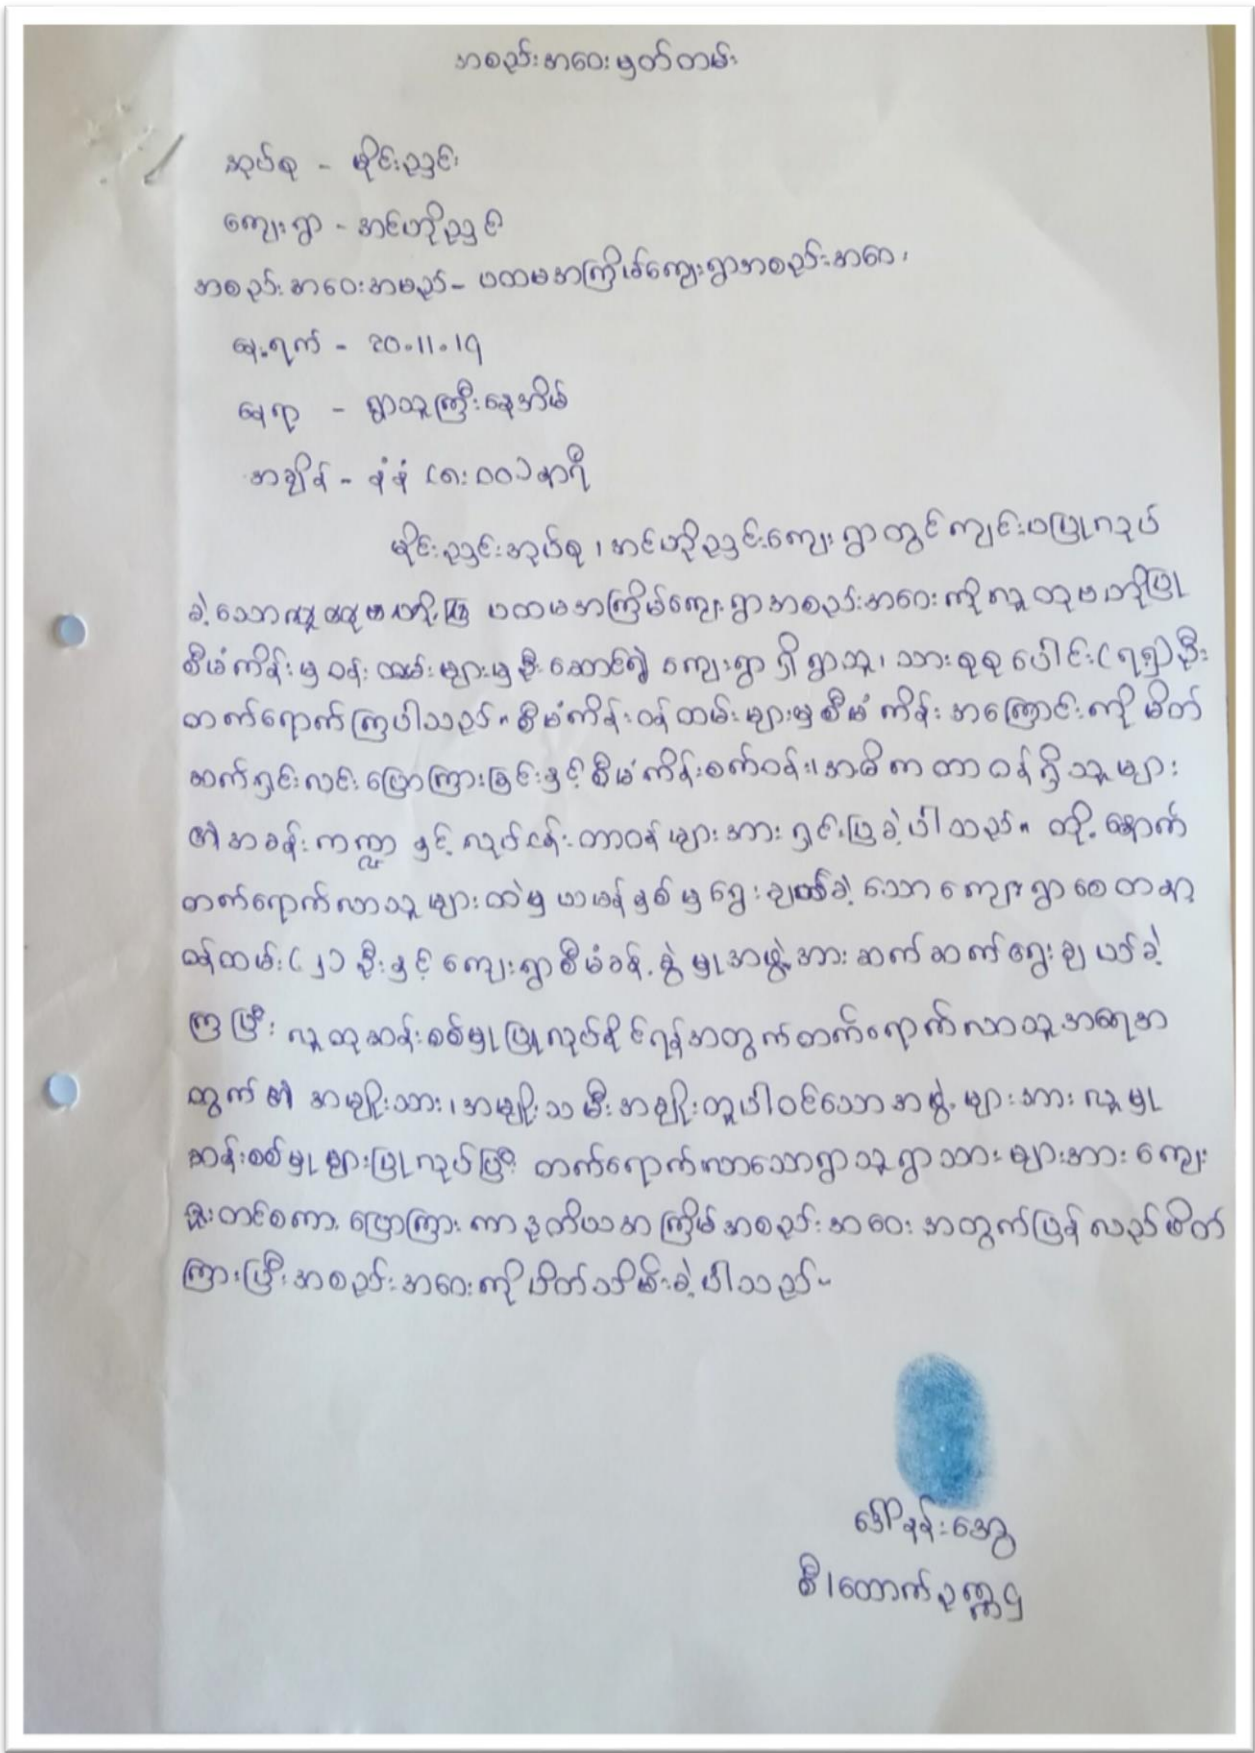 အစည်းအဝေးမှတ်တမ်း
အုပ်စု - မိုင်းညှင်း
ကျေးရွာ - အင်ဟိုညှင်
အစည်းအဝေးအမည် - ပထမအကြိမ်ကျေးရွာအစည်းအဝေး
နေ့ရက် - 20.11.19
နေရာ - ရွာသူကြီးနေအိမ်
အချိန် - နံနံ (၈:၀၀) နာရီ
မိုင်းညှင်းအုပ်စု၊ အင်ဟိုညှင်းကျေးရွာတွင်ကျင်းပပြုလုပ်
ခဲ့သော ပထမအကြိမ်ကျေးရွာအစည်းအဝေးကို လူထုဗဟိုပြု
စီမံကိန်းမှ ဝန်းထမ်းများမှဦးဆောင်၍ ကျေးရွာရှိ ရွာသူ၊သားစုစုပေါင်း ( ၇၅) ဦး
တက်ရောက်ကြပါသည်။ စီမံကိန်းဝန်ထမ်းများမှစီမံကိန်းအကြောင်းကို မိတ်
ဆက်ရှင်းလင်းပြောကြားခြင်းနှင့် စီမံကိန်းစက်ဝန်း၊ အဓိကတာဝန်ရှိသူများ
၏အခန်းကဏ္ဍနှင့် လုပ်ငန်းတာဝန်များအားရှင်းပြခဲ့ပါသည်။ ထို့နောက်
တက်ရောက်လာသူများထဲမှ ယမန်နှစ်မှရွေးချယ်ခဲ့သော ကျေးရွာစေတနာ့
ဝန်ထမ်း (၂) ဦးနှင့် ကျေးရွာစီမံခန့်ခွဲမှုအဖွဲ့အားဆက်ဆက်ရွေးချယ်ခဲ့
ကြပြီး လူထုဆန်းစစ်မှုပြုလုပ်နိုင်ရန်အတွက်တက်ရောက်လာသူအရေအ
တွက်၏ အမျိုးသား၊အမျိုးသမီးအချိုးတူပါဝင်သောအဖွဲ့များအား လူမှု
ဆန်းစစ်မှုများပြုလုပ်ပြီး တက်ရောက်လာသောရွာသူရွာသားများအား ကျေး
ဇူးတင်စကားပြောကြားကာ ဒုတိယအကြိမ်အစည်းအဝေးအတွက်ပြန်လည်ဖိတ်
ကြားပြီးအစည်းအဝေးကိုပိတ်သိမ်းခဲ့ပါသည်။
ဒေါ်နန်းအေ့
စီ၊ထောက်ဥက္ကဌ